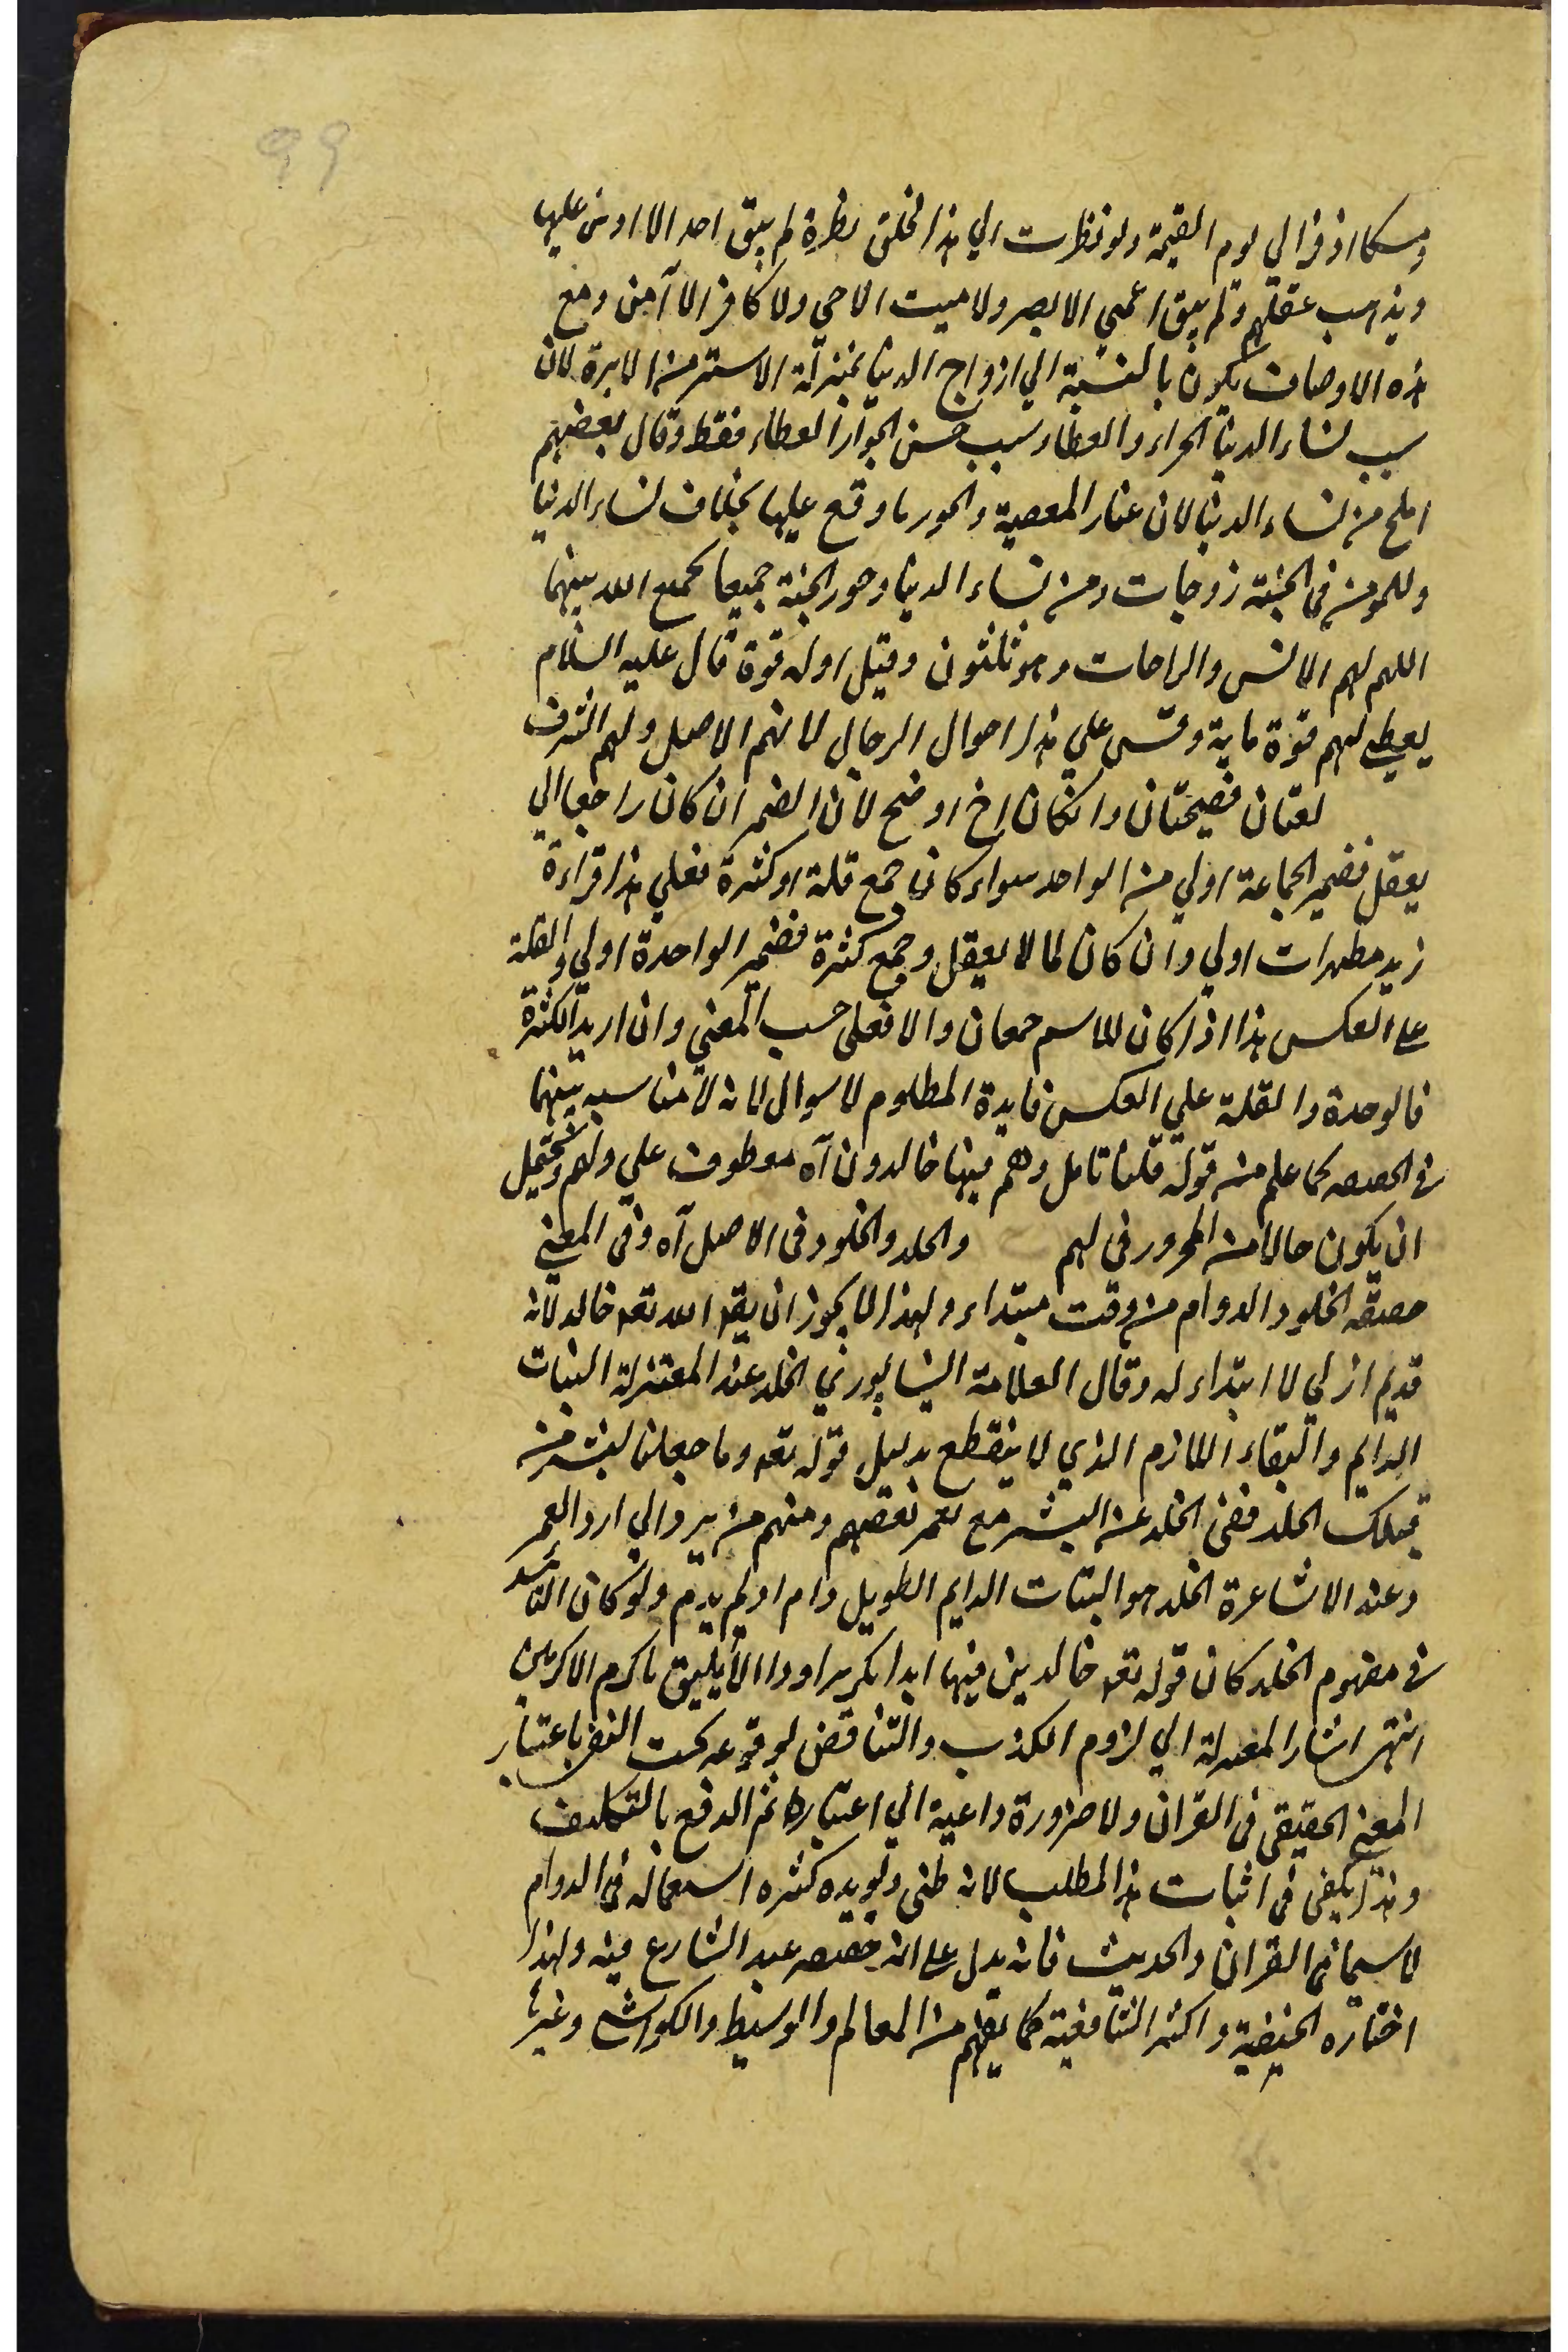 99
ومسكا اذفرا الي يوم القيمة ولو نظرت الي هذا الخلق نظرة لم يبق احد الا اوش عليها
ويذهب عقلهم ولم يبق اعمي الا بصر ولا ميت الا حي ولا كافر الا آمن ومع
هذه الاوصاف يكون بالنسبة الي ازواج الدنيا بمنزلة الاستر من الابرة لان
سبب نساء الدنيا الجزاء والعطاء وسبب حسن الجوار العطاء فقط وقال بعضهم
املح من نساء الدنيا لان غبار المعصية والجور ما وقع عليها بخلاف نساء الدنيا
وللمومن في الجنة زوجات من نساء الدنيا وحور الجنة جميعا يجمع الله بينهما
اللهم لهم الانس والراحات وهو ثلثون وقيل اوله قوة قال عليه السلام
يعطي لهم قوة ماية وقس علي هذا احوال الرجال لانهم الاصل ولهم الشرف
لغتان فصيحتان وانكان اخ اوضح لان الضمير ان كان راجعا الي
يعقل فضمير الجماعة اولي من الواحد سواء كان جمع قلة او كثرة فعلي هذا قراءة
زيد مطهرات اولي وان كان لما لا يعقل وجمع كثرة فضمير الواحدة اولي والقلة
على العكس هذا اذا كان للاسم جمعان والا فعلى حسب المعني وان اريد الكثرة
فالوحدة والقلة علي العكس فايدة المطلوم لا سوال لانه لا مناسبه بينهما
في الحصه كما علم من قوله قلنا تامل وهم فيها خالدون آه معطوف علي ولهم ويحتمل
ان يكون حالا من المجرور في لهم والخلد والخلود في الاصل آه وفي المعني
حقيقه الخلود الدوام من وقت مبتداء ولهذا لا يجوز ان يقه الله تعه خالد لانه
قديم ازلي لا ابتداء له وقال العلامة النيسابوري الخلد عند المعتزلة الثبات
الدايم والبقاء اللازم الذي لا ينقطع بدليل قوله تعه وما جعلنا لبشر من
قبلك الخلد فنفي الخلد عن البشر مع تعمر بعضهم ومنهم من يرد الي ارذل العمر
وعند الاشاعرة الخلد هو الثبات الدايم الطويل دام او لم يدم ولو كان التابيد
في مفهوم الخلد كان قوله تعه خالدين فيها ابدا تكريرا وذا لا يليق باكرم الاكرمين
انتهى اشار المعتزلة الي لزوم الكذب والتناقض لوقوعه تحت النفي باعتبار
المعني الحقيقي في القران ولا ضرورة داعية الي اعتباره ثم الدفع بالتكليف
وهذا يكفي في اثبات هذا المطلب لانه ظني ويويده كثرة استعماله في الدوام
لاسيما في القران والحديث فانه يدل على انه حقيقه عند الشارع فيه ولهذا
اختاره الحنفية واكثر الشافعية كما يفهم من المعالم والوسيط والكواشي وغيرها